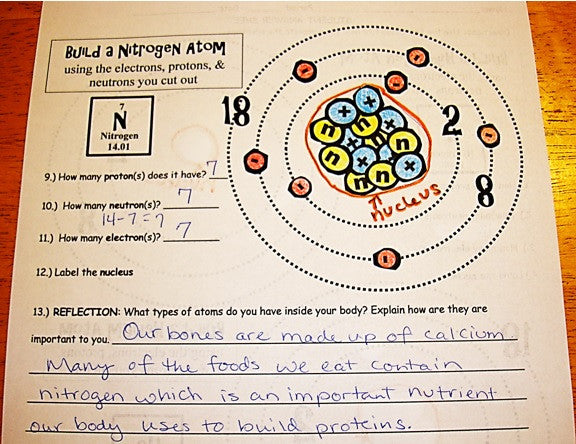 Build a Nitrogen Atom
using the electrons, protons, &
neutrons you cut out
7
N
Nitrogen
14.01
18
2
8
nucleus
9.) How many proton(s) does it have? 7
10.) How many neutron(s)? 7
14-7=7
11.) How many electron(s)? 7
12.) Label the nucleus
13.) REFLECTION: What types of atoms do you have inside your body? Explain how are they are
important to you. Our bones are made up of calcium
Many of the foods we eat contain
nitrogen which is an important nutrient
our body uses to build proteins.